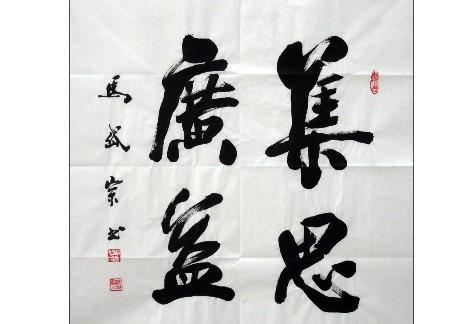 集思
廣益
馬武宗书